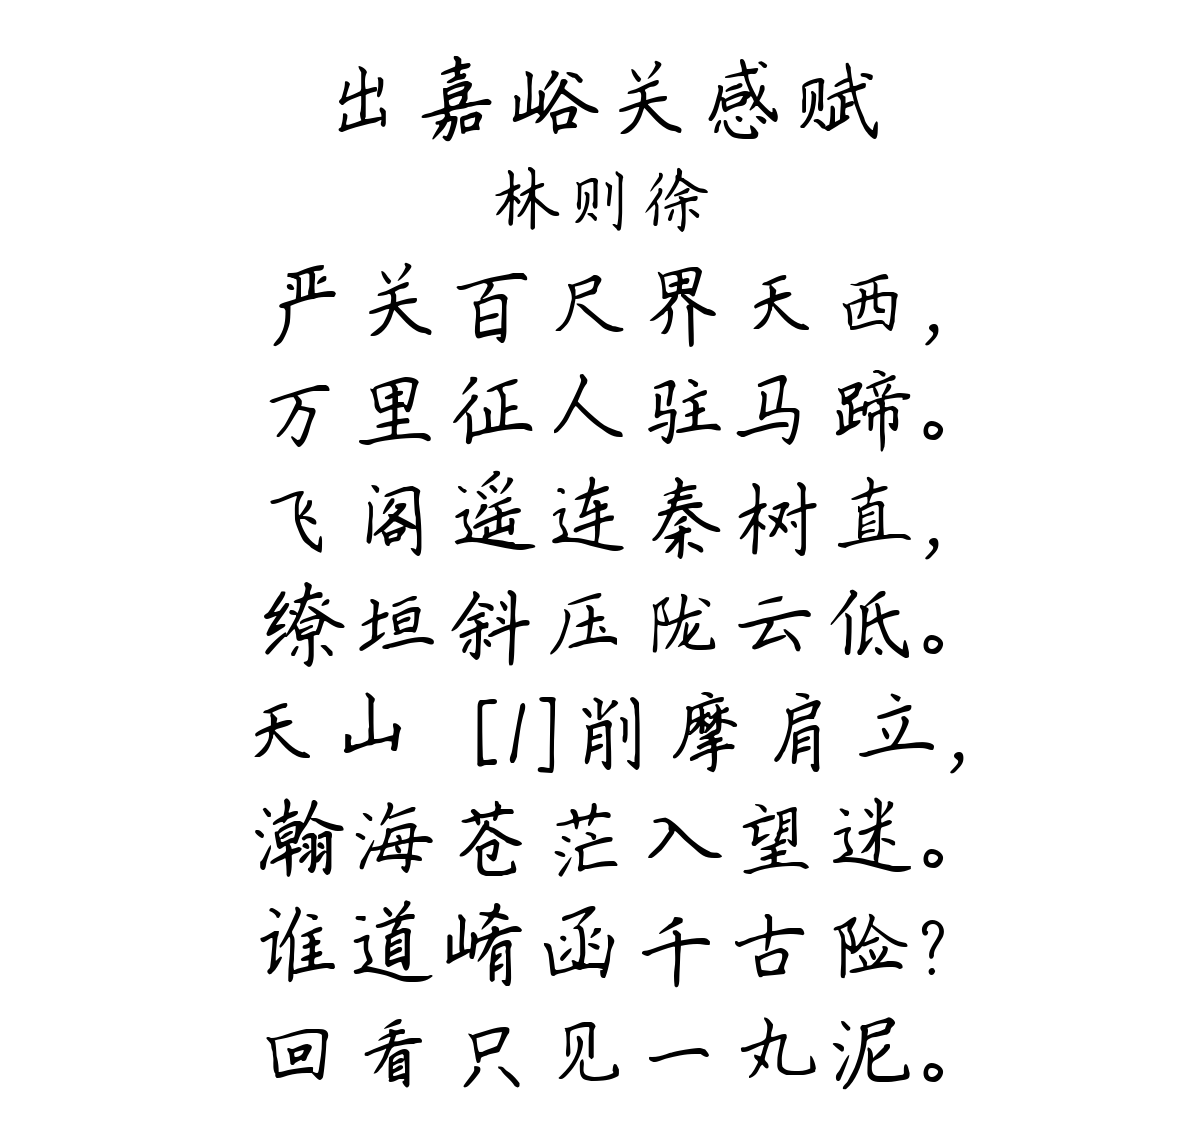 出嘉峪关感赋
林则徐
严关百尺界天西,
万里征人驻马蹄。
飞阁遥连秦树直,
缭垣斜压陇云低。
天山 [/]削摩肩立,
瀚海苍茫入望迷。
谁道崤函千古险?
回看只见一丸泥。